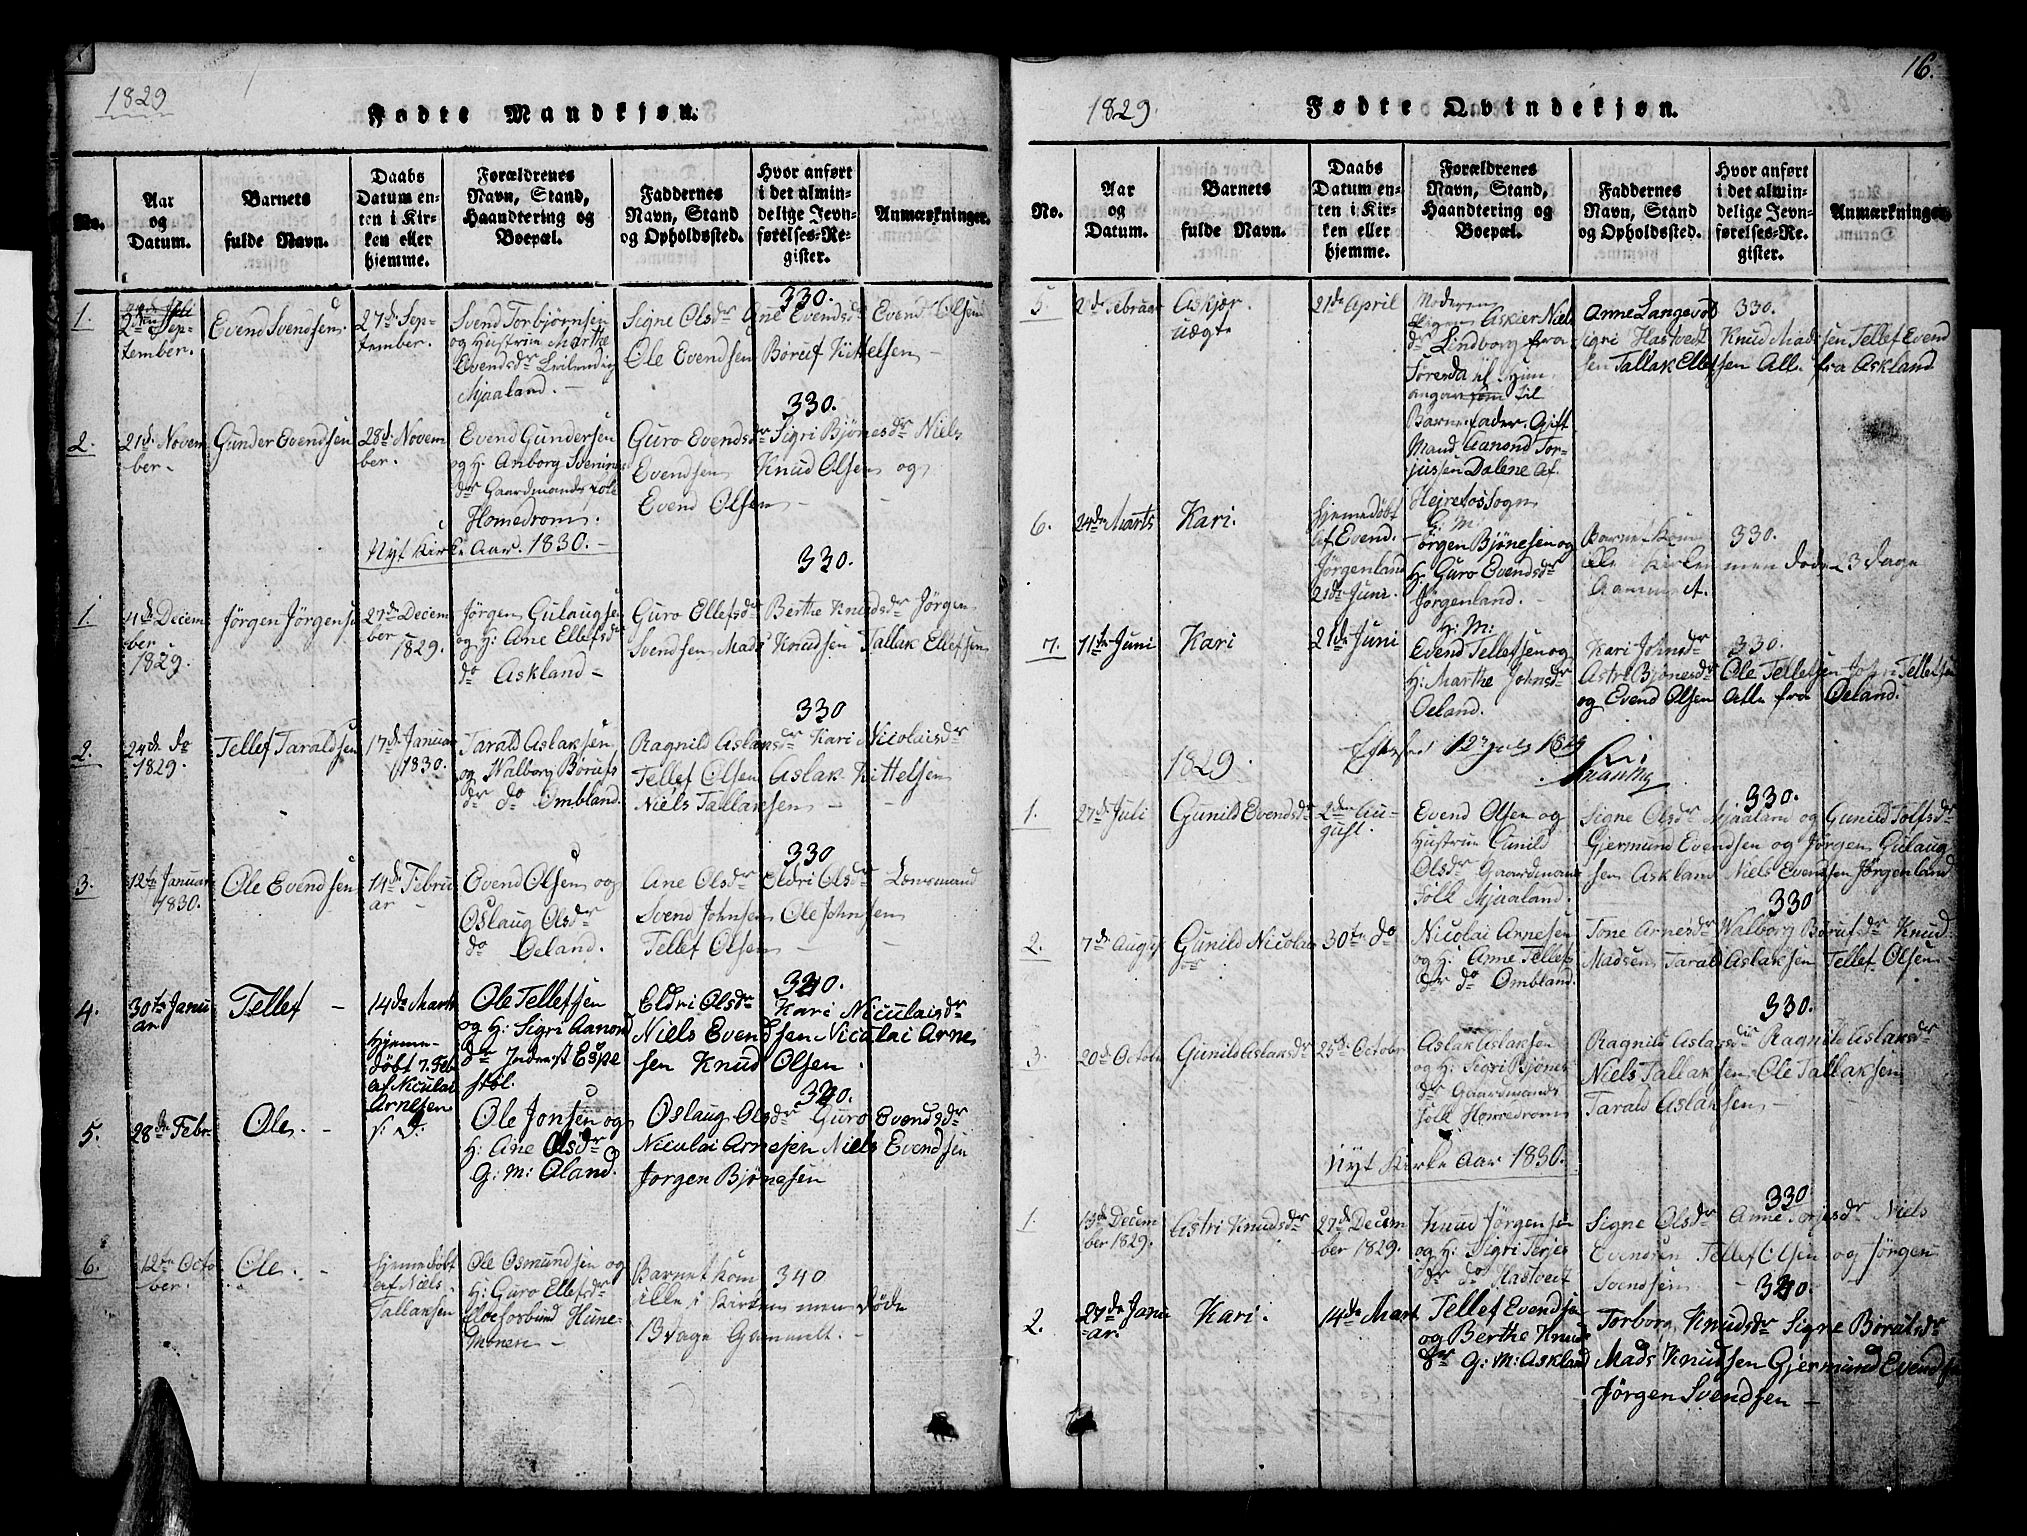 1829
Fødte Mandkjøn.
No.
Aar
og
Datum.
Barnets
fulde Navn.
Daabs
Datum en-
ten i Kir-
ken eller
hjemme.
Forældrenes
Navn, Stand,
Haandtering og
Boepæl.
Faddernes
Navn, Stand
og Opholdssted.
Hvor anført
i det almin-
delige Jevn-
førelses-Re-
gister.
Anmærkninger.
1.
2den Sep-
tember.
Evend Svendsen
27de Sep-
tember.
Svend Torbjørnsen
og Hustrue Marthe
Evendsdr
Mjaaland.
330.
Signe Olsdr Ane Evendsdr Evend Olsen
Ole Evendsen Børuf Kittelsen
2.
21d. Novem
ber.
Gunder Evendsen
28d. Novem
ber.
Evend Gundersen
og H. Anborg Svenings
dr Gaardmands folk
Homedrom.
330.
Guro Evendsdr Sigri Bjønesdr Niels
Evendsen Knud Olsen og
Evend Olsen
Nyt Kirke Aar. 1830.
1.
11te Decem
ber
1829.
Jørgen Jørgensen
27de Decem
ber
1829.
Jørgen Gulaugsen
og H: Ane Ellefsdr
do Askland
330.
Guro Ellefsdr Berthe Knudsdr Jørgen
Svendsen Mads Knudsen Tallak Ellefsen
2.
24de do
1829.
Tellef Taraldsen
17de Januar
1830.
Tarald Aslaksen
og Walborg Børufs
dr do Ombland.
330
Ragnild Aslaksdr Kari Nicolaisdr
Tellef Olsen Aslak Kittelsen
Niels Tallaksen
3.
12te Januar
1830.
Ole Evendsen
14de Febru
ar
Evend Olsen og
Oslaug Olsdr
do Oeland.
330
Ane Olsdr Eldri Olsdr Lonemand
Svend Johnsen Ole Johnsen
Tellef Olsen
4.
30te Janu
ar
Tellef
14de Marts
Hjemme-
døbt 7. Feb
af Niculai
Arnesen
Ole Tellefsen
og H: Sigri Aanond
dr Inderst Espe
støl.
340.
Eldri Olsdr Kari Niculaisdr
Niels Evendsen Niculai Arne
sen Knud Olsen.
5.
28de Febr.
Ole.
s: D:
Ole Jonsen og
H: Ane Olsdr
G: M: Øland.
340.
Oslaug Olsdr Guro Evendsdr
Niculai Arnesen Niels Evendsen
Jørgen Bjønesen
6.
12te Octo
ber.
Ole.
Hjemmedøbt
af Niels
Tallaksen
Ole Osmundsen og
H: Guro Ellefsdr
Hune-
Monen
340
Barnet kom
ikke i Kirken men døde
13 Dage Gammelt.
16.
1829.
Fødte Qvindekjøn.
No.
Aar
og
Datum.
Barnets
fulde Navn.
Daabs
Datum en-
ten i Kir-
ken eller
hjemme.
Forældrenes
Navn, Stand,
Haandtering og
Boepæl.
Faddernes
Navn, Stand
og Opholdssted.
Hvor anført
i det almin-
delige Jevn-
førelses-Re-
gister.
Anmærkninger.
5.
2de Februar
Askjær.
uægte
21de April
Moderen
Pigen Askier Niels
dr Lindborg fra
angiver som til
Barnefader Gift
Mand Aanond Tor-
jussen Dalene af
Hejrefos Sogn
330.
Anne Langevod
Sigri Hastvedt Knud Madsen Tellef Evend
sen Tallak Ellefsen All. fra Askland
6.
24de Marts
Kari.
Hjemmedøbt
af Evend.
Jørgenland
21de Juni.
G: M:
Jørgen Bjønesen og
H: Guro Evendsdr
Jørgenland.
330.
Barnet kom
ikke i Kirken men døde 23 Dage
Gammelt.
7.
11te Juni
Kari
21de Juni
H: M:
Evend Tellefsen og
H: Marthe Johnsdr
Oeland.
330.
Kari Johnsdr
Astri Bjønesdr Ole Tellefsen John Tellefsen
og Evend Olsen Alle fra Oeland.
1829.
Efterseet 12 July 1829
1.
27de Juli
Gunild Evendsdr
2den Au-
gust.
Evend Olsen og
Hustrue Gunild
Olsdr Gaardmans
Folk Mjaaland.
330.
Signe Olsdr Mjaaland og Gunild Tolfsdr
Gjermund Evendsen og Jørgen Gulaug
sen Askland Niels Evendsen Jørgenland
2.
7de August
Gunild Nicolai
dr
30te do
Nicolai Arnesen
og H: Anne Tellefs
dr do Ombland.
330
Tone Arnesdr Walborg Børufsdr Knud
Madsen Tarald Aslaksen Tellef Olsen
3.
20de October
Gunild Aslaksdr
25de Octobr
Aslak Aslaksen
og H: Sigri Bjønes
dr Gaardmands
Folk Homedrom
330.
Ragnild Aslaksdr Ragnild Aslaksdr
Niels Tallaksen Ole Tallaksen
Tarald Aslaksen
Nyt Kirke Aar 1830.
1.
13de Decem
ber 1829.
Astri Knudsdr
27de Decem
ber 1829.
Knud Jørgensen
og H: Sigri Terjes
dr do Hastveit
330
Signe Olsdr Anne Terjesdr Niels
Evendsen Tellef Olsen og Jørgen
Svendsen
2.
27de Janu
ar.
Kari.
14de Mart
Tellef Evendsen
og Berthe Knuds
dr G: M: Askland
340.
Torborg Knudsdr Signe Børufsdr
Mads Knudsen Gjermund Evendsen
Jørgen Svendsen